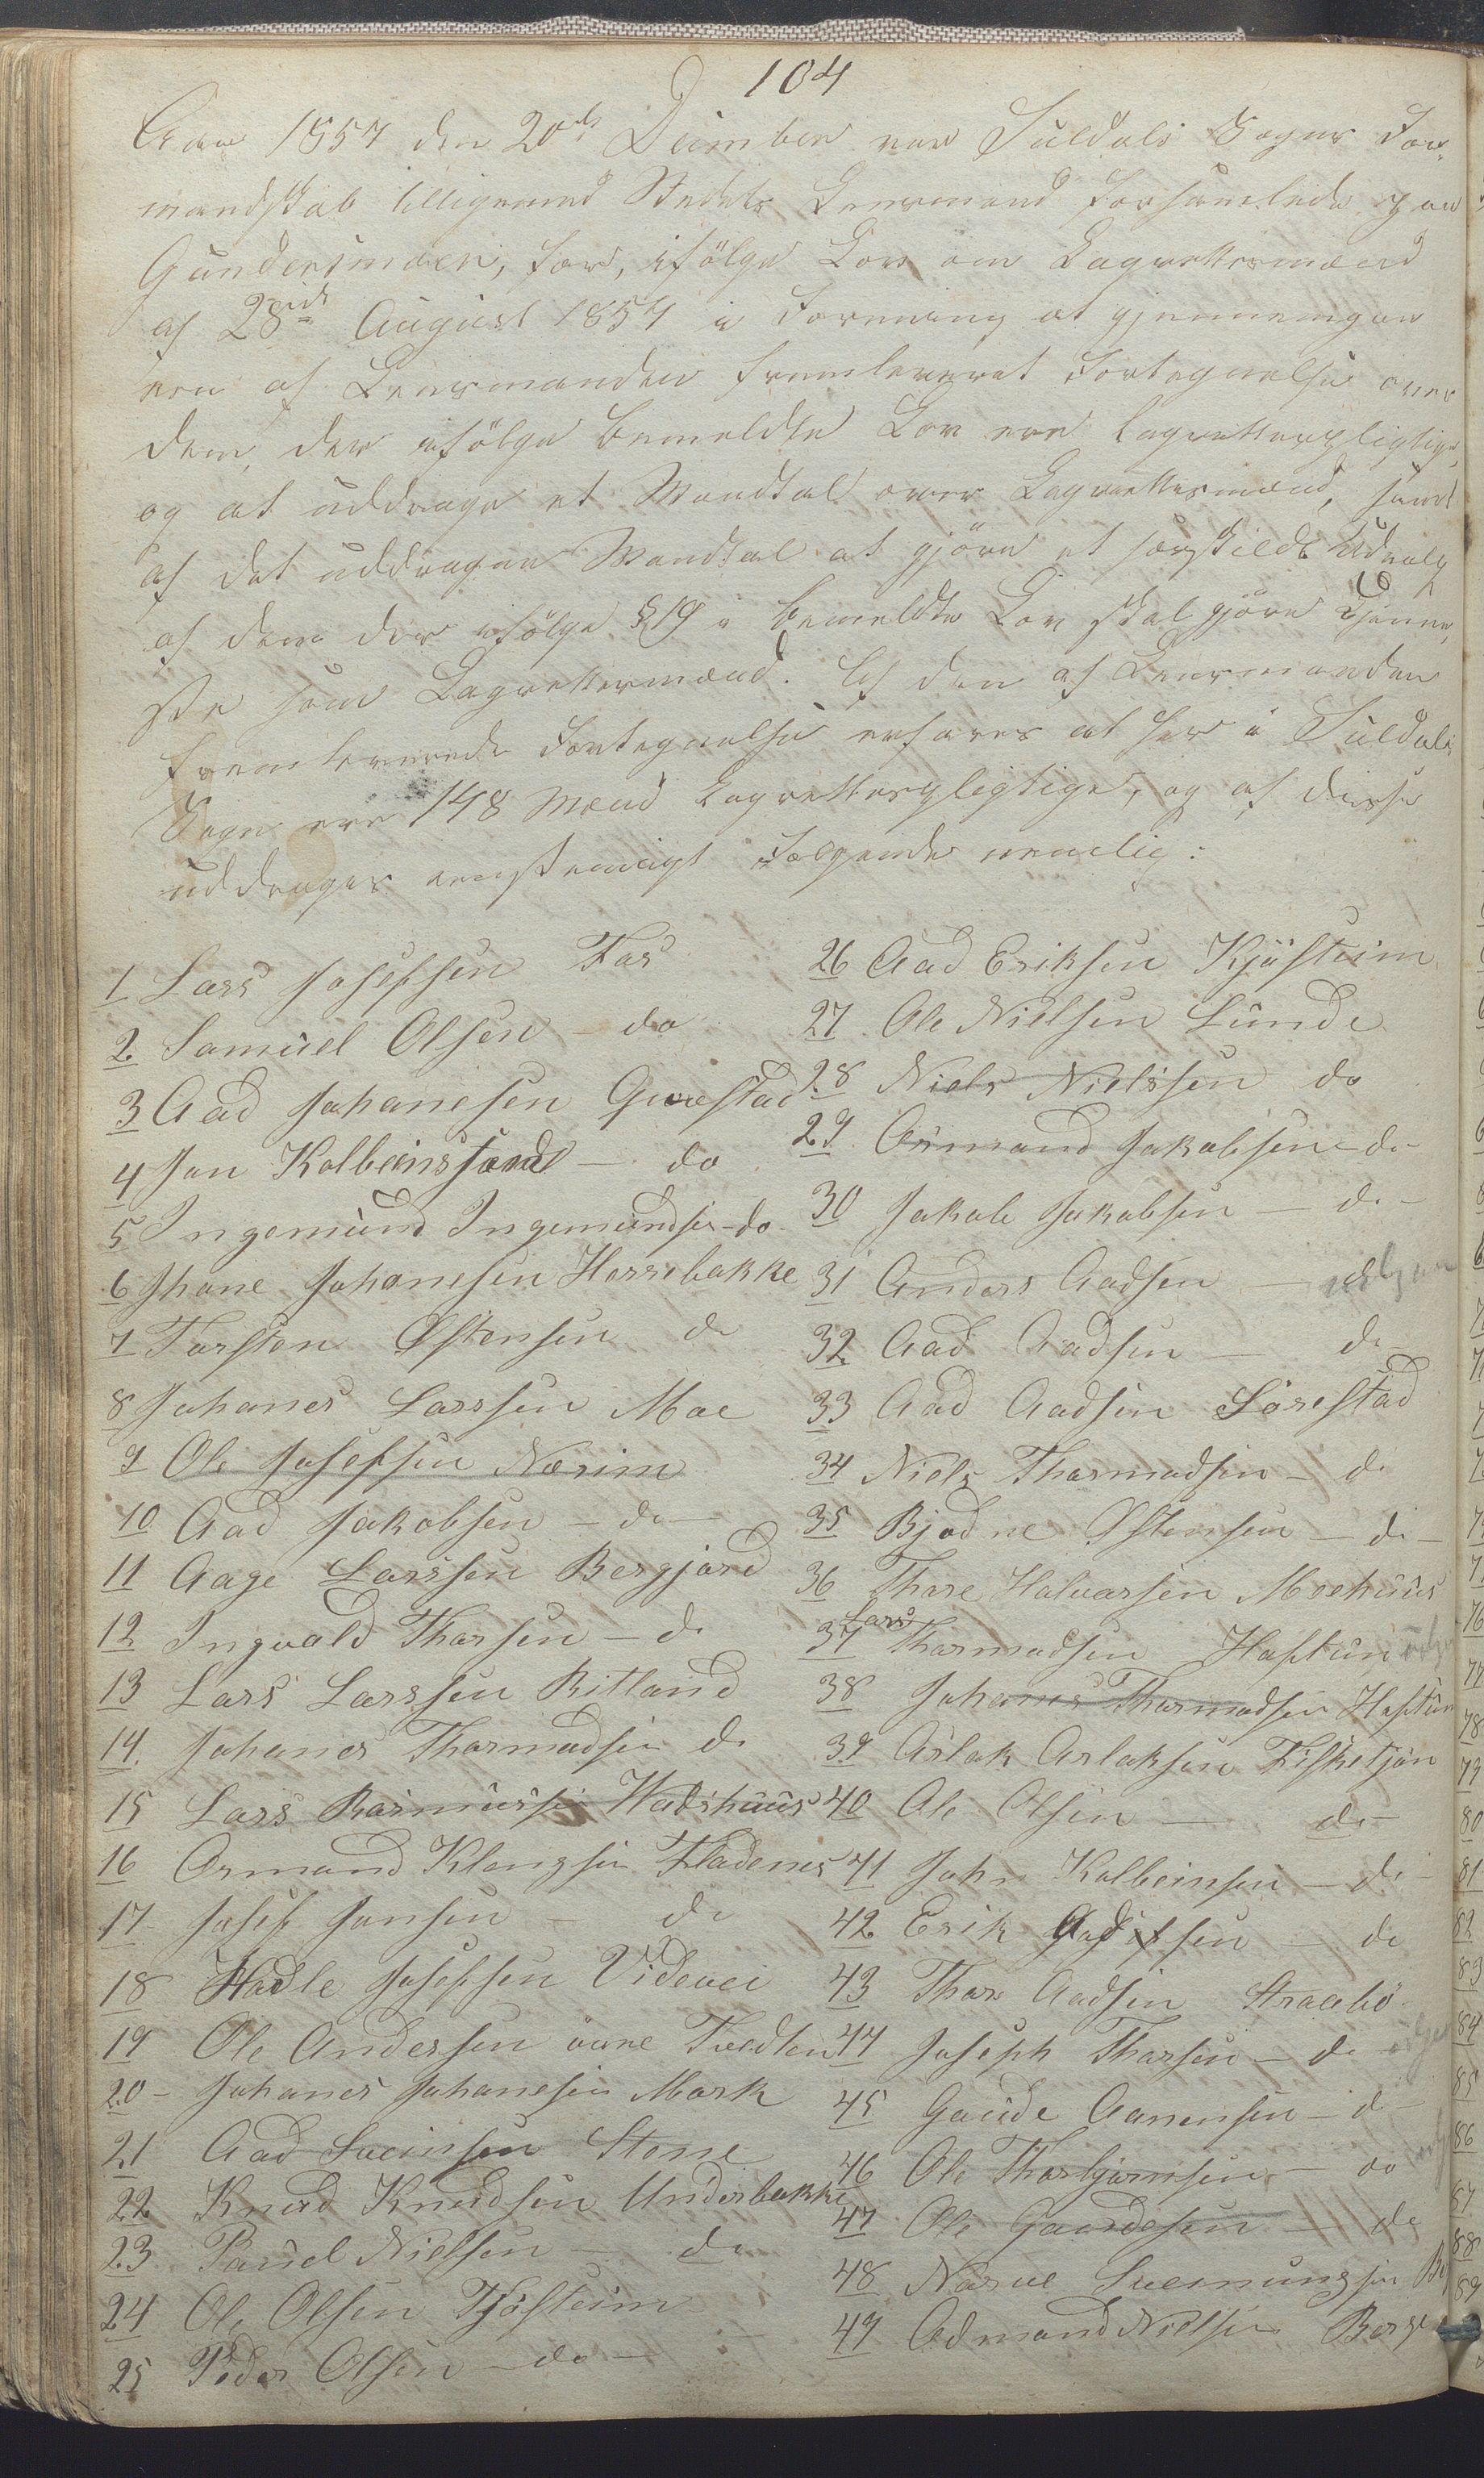 104
Aar 1857 den 20de Decimber var Suldals Sogns For-
mandskab tilligemed Stedets Lensmand forsamlede paa
Gundersmoen, for, ifölge Lov om Lagrettesmænd
af 28de August 1854 i Forening at gjennemgaa
een af Lensmanden fremleveret Fortegnelse over
dem, der ifölge bemeldte Lov ere lagrettespligtige,
og at uddrage et Mandtal over Lagrettesmænd, samt
af det uddragne Mandtal at gjöre et særskildt Udvalg
af dem der ifölge § 19 i bemeldte Lov skal gjöre Tjene-
ste som Lagrettesmænd. Af den af Lensmanden
fremleverede Fortegnelse erfares at her i Suldals
Sogn ere 148 Mænd Lagrettespligtige, og af disse
uddrages eenstemigt Følgende nemlig:
1 Lars Josefsen Fos
2 Samuel Olsen - do
3 Aad Johanesen Gvæstad
4 Jon Kolbeinssønd - do
5 Ingemund Ingemundsen - do
6 Jhane Johanesen Herrebakke
7 Torsten Østensen do
8 Johanes Larssen Moe
9 Ole Josefsen Nærim
10 Aad Jakobsen - do -
11 Aage Larssen Bergjord
12 Ingvald Thorsen - do
13 Lars Larssen Ritland
14 Johanes Thormodsen do
15 Lars Rasmussen Wadshuus
16 Ormand Klengsen Fladenes
17 Josef Jonsen - do
18 Hadle Josefsen Videvei
19 Ole Andersen övre Tvedten
20 - Johanes Johanesen Mork
21 Aad Sveinsen Stone
22 Knud Knudsen Underbakke
23 Paul Nielsen - do
24 Ole Olsen Kjösteim
25 Peder Olsen - do -
26 Aad Eriksen Kjösteim
27 Ole Nielsen Lunde
28 Niels Nielssen do
29 Ormand Jakobsen - do -
30 Jakob Jakobsen - do -
31 Anders Aadsen - do
32 Aad Aadsen - do
33 Aad Aadsen Sörestad
34 Niels Thormodsen - do
35 Bjödne Østensen - do -
36 Thore Halvorsen Moehuus
37 Lars Thormodsen Haftun
38 Johanes Thormodsen Haftun
39 Aslak Aslaksen Fisketjön
40 Ole Olsen - do -
41 John Kolbeinsen - do -
42 Erik sen - do
43 Thor Aadsen Straabö
44 Joseph Thorsen - do -
45 Gaude Aanensen - do -
46 Ole Thorbjørnsen - do
47 Ole Gaudesen - do
48 Narve Sveinungsen
49 Odmand Nielsen